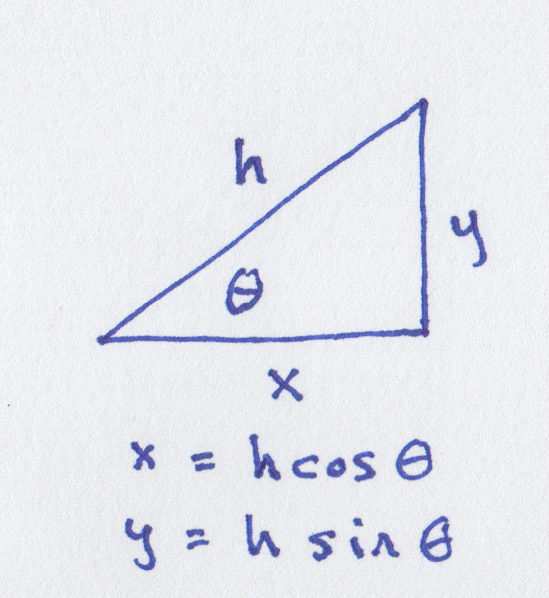 h
y
θ
x
x = h cos θ
y = h sin θ